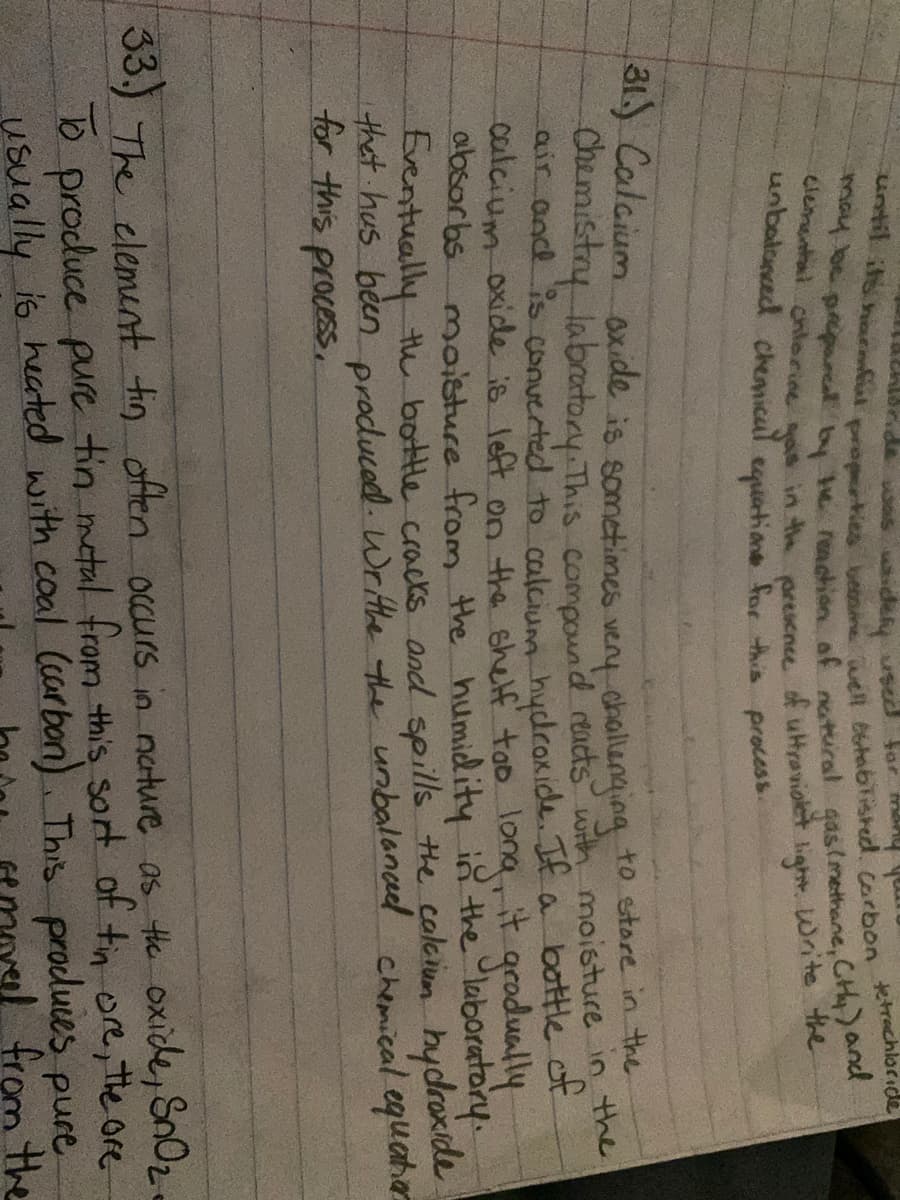 until its harmful properties become well established. Carbon tetrachloride
may be prepared by he reaction of natural gas (methane, CH4) and
elemental chlorine gas in the presence of ultraviolet light. Write the
unbalanced chemical equations for this process.
31.) Calcium oxide is sometimes very challenging to store in the
chemistry labratory. This compound reacts with moisture in the
air and is converted to calcium hydroxide. If a bottle of
calcium oxide is left on the shelf too long, it gradually
absorbs moisture from the humidity in the laboratory.
Eventually the bottle cracks and spills the calcium hydroxide
that has been produced. Writbe the unbalanced chemical equation
for this process.
33.) The element tin often occurs in nature as the oxide, SnO2.
To produce pure tin metal from this sort of tin ore, the ore
usually is heated with coal (carbon). This produces pure
removed from the